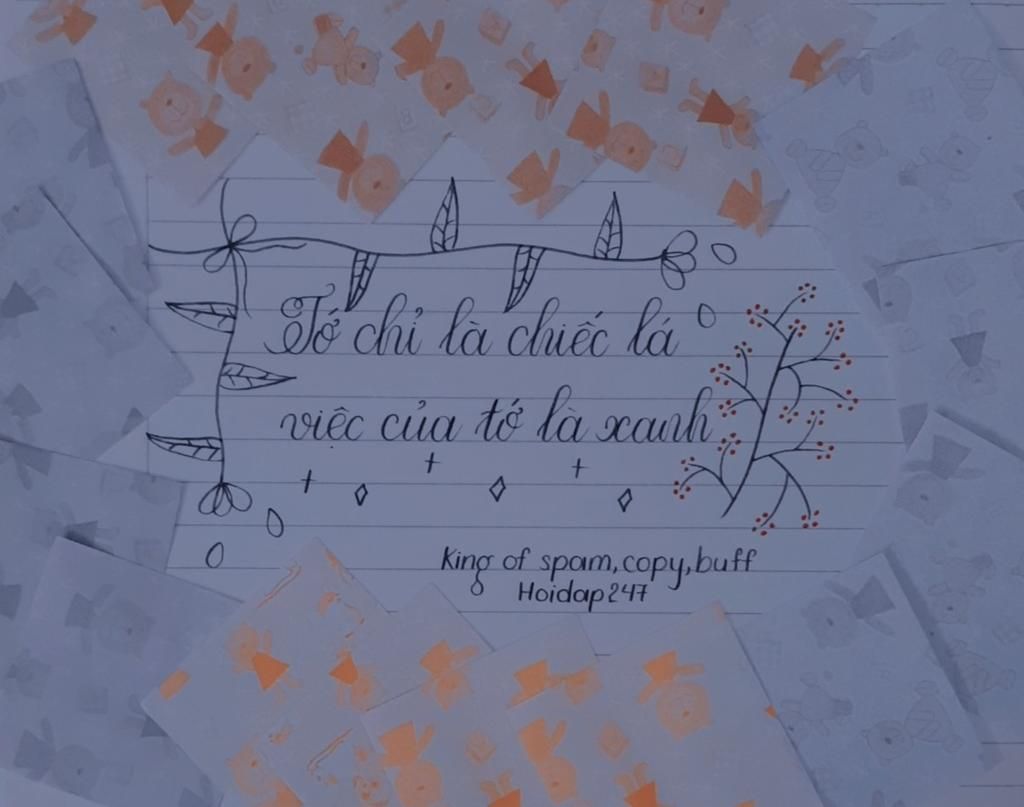 Tớ chỉ là chiếc lá
việc của tớ là xanh
King of spam,copy,buff
Hoidap247